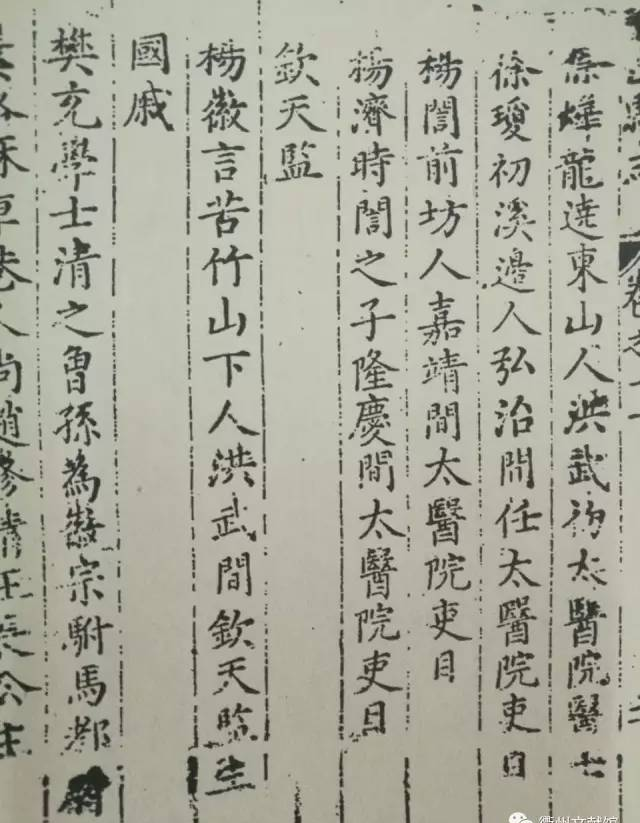 卷之
龍遶東山人洪武初太醫院醫士
徐瓊初溪邊人弘治間任太醫院吏目
楊誾前坊人嘉靖間太醫院吏目
楊濟時誾之子隆慶間太醫院吏目
欽天監
楊徽言苦竹山下人洪武間欽天監生
國戚
樊充學士清之曾孫為徽宗駙馬都尉
巷人尚趙
衢州文献馆